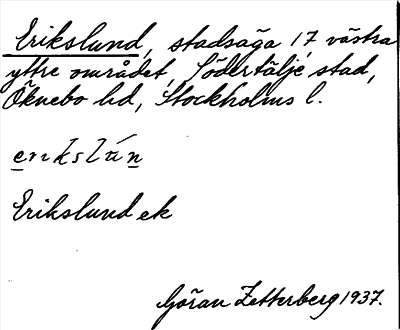 Erikslund, stadsäga 17, västra
yttre området, Södertälje stad,
Öknebo hd, Stockholms l.
erikslún
Erikslund ek
Göran Zetterberg 1937.